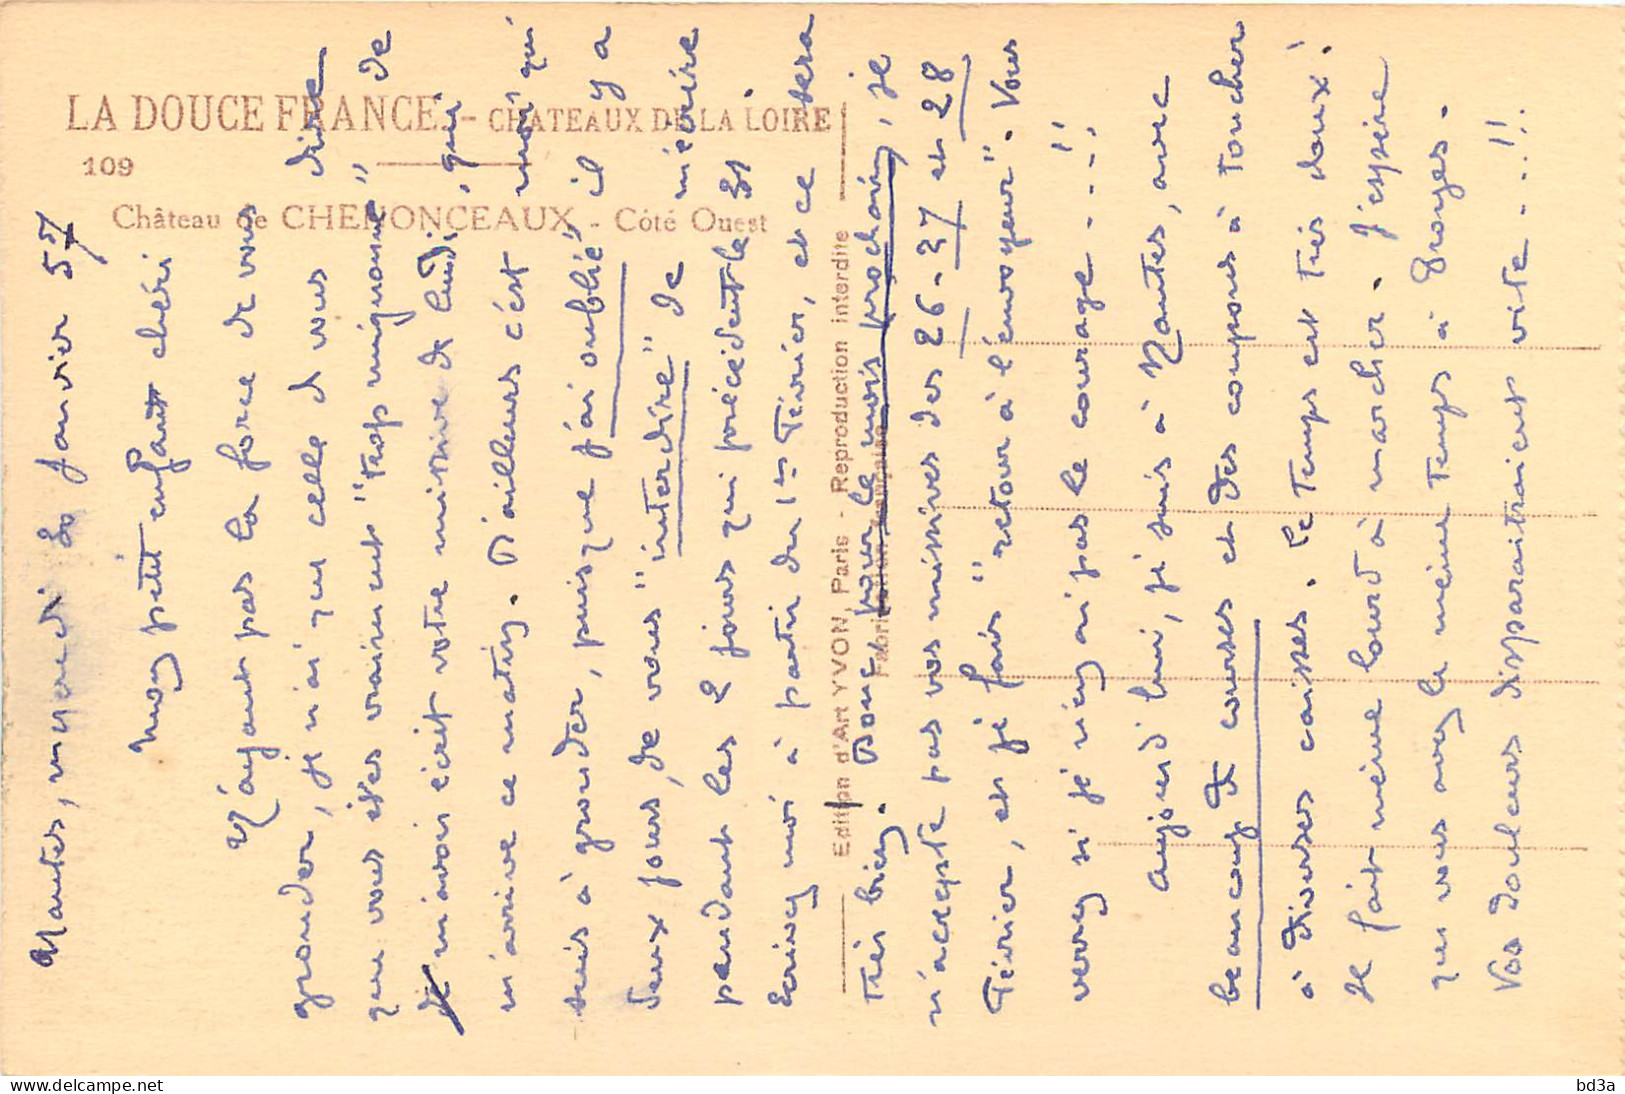 LA DOUCE FRANCE. - CHATEAUX DE LA LOIRE
109
Château de CHENONCEAUX - Côté Ouest
Edition d'Art YVON, Paris - Reproduction interdite
Fabrication française
Nantes, mercredi 30 Janvier 57
Mon petit enfant chéri
N'ayant pas la force de vous
gronder, je n'ai que celle de vous dire
que vous êtes vraiment "trop mignonne" de
m'avoir écrit votre missive de lundi, qui
m'arrive ce matin. D'ailleurs c'est moi qui
suis à gronder, puisque j'ai oublié il y a
deux jours, de vous "interdire" de m'écrire
pendant les 2 jours qui précèdent le 31.
Ecrivez moi à partir du 1er Février, et ce sera
très bien. Donc pour le mois prochain, je
n'accepte pas vos missives des 26 - 27 et 28
Février, et je fais "retour à l'envoyeur". Vous
verrez si je n'en ai pas le courage - - - !!
Aujourd'hui, je suis à Nantes, avec
beaucoup de courses et des coupons à toucher
à diverses caisses. Le temps est très doux !
Il fait même lourd à marcher. J'espère
que vous avez le même temps à Troyes.
Vos douleurs disparaitraient vite - - - !!!
delcampe.net
bd3a